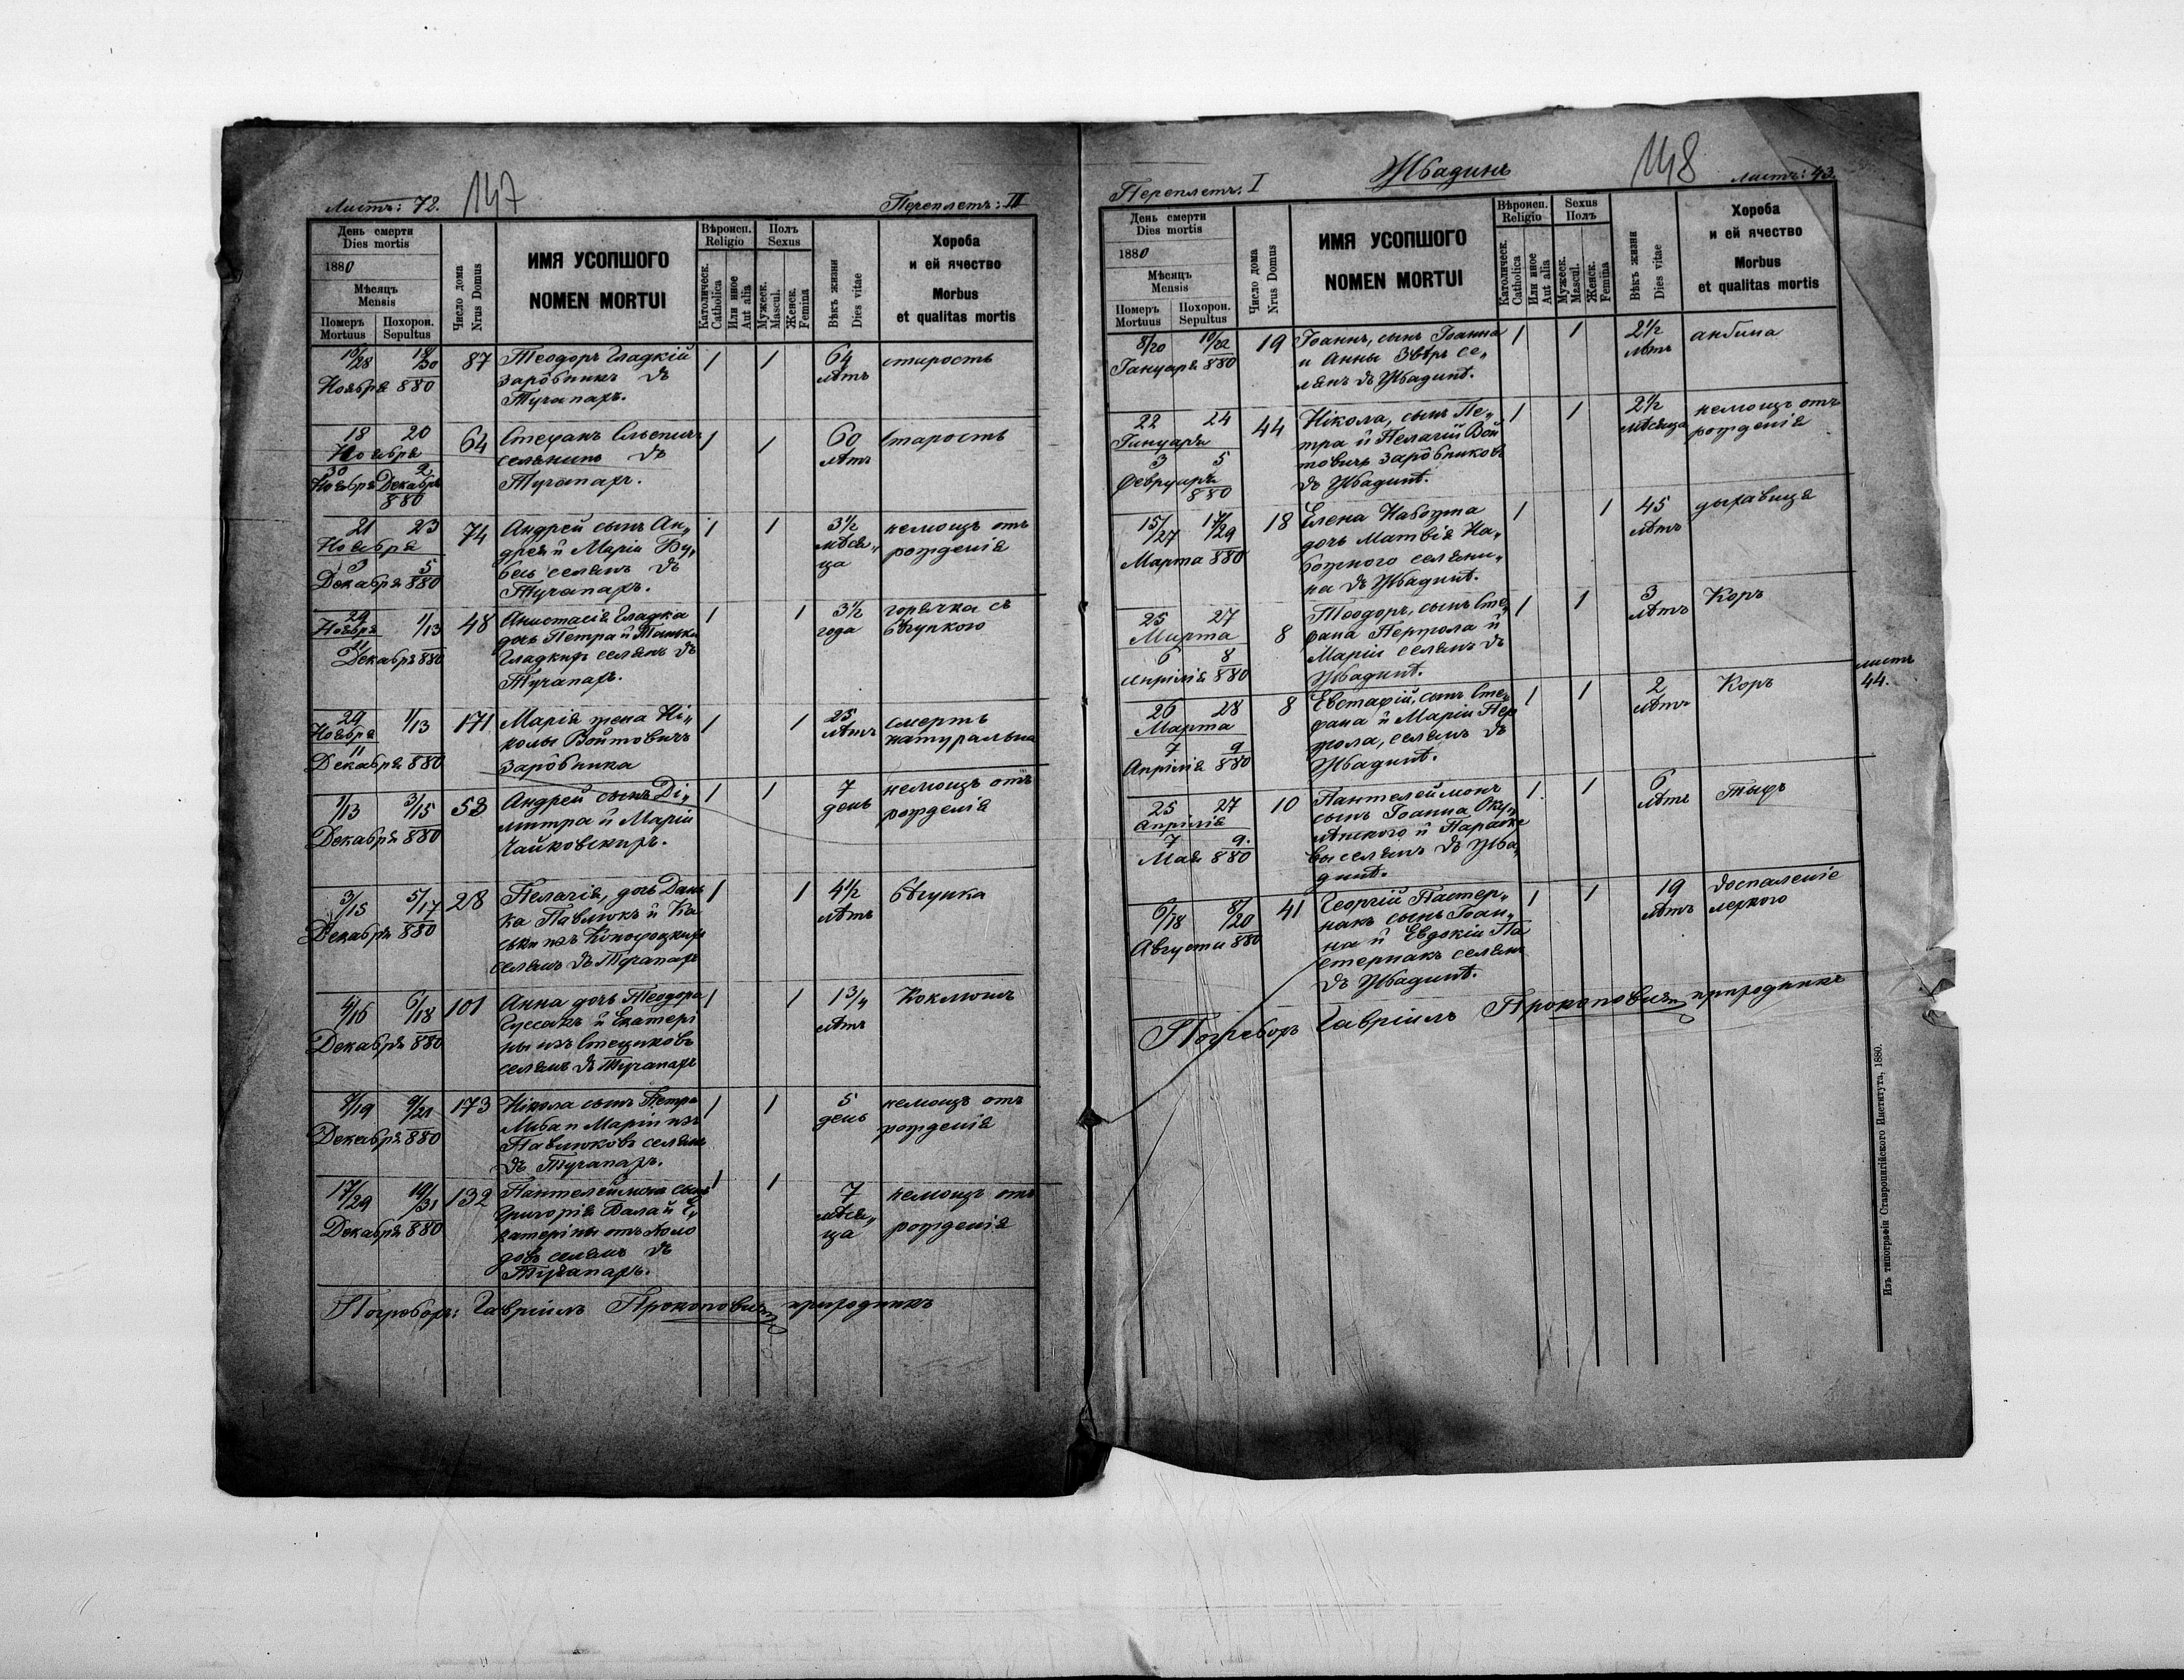 Листъ: 72.
147
Переплетъ: III
День смерти
Dies mortis
1880
Мѣсяцъ
Mensis
Померъ
Mortuus
Похорон.
Sepultus
Число дома
Nrus Domus
ИМЯ УСОПШОГО
NOMEN MORTUI
Вѣроисп.
Religio
Католическ.
Catholica
Или иное
Aut alia
Полъ
Sexus
Мужеск.
Mascul.
Женск.
Femina
Вѣкъ жизни
Dies vitae
Хороба
и ей ячество
Morbus
et qualitas mortis
16/28 18/30 87 Теодоръ Гладкій 1 1 64 старость
Ноября 880 зарôбникъ въ лѣтъ
Тучапахъ.
18 20 64 Стефанъ 1 1 60 Старость
Ноября селянинъ въ лѣтъ
30 2 Тучапахъ.
Ноября Декабря
880
21 23 74 Андрей сынъ Ан„ 1 1 3½ немощь отъ
Ноября дрея и Маріи Бу„ мѣся„ рожденія
3 5 бесь селянъ въ ца
Декабря 880 Тучапахъ.
29 1/13 48 Анастасія Гладка 1 1 3½ горячка съ
Ноября дочь Петра и года бѣгункою
11 Гладкихъ селянъ въ
Декабря 880 Тучапахъ.
29 1/13 171 Марія жена Ні„ 1 1 25 смерть
Ноября колы Войтовичъ лѣтъ натуральна
11 зарôбника
Декабря 880
1/13 3/15 53 Андрей сынъ Ди„ 1 1 7 немощь отъ
Декабря 880 митра и Маріи день рожденія
Чайковскихъ.
3/15 5/17 28 Пелагія, дочь Дань 1 1 4½ бѣгунка
Декабря 880 ка Павлюкъ и Ка лѣтъ
ськи изъ
селянъ въ Тучапахъ
4/16 6/18 101 Анна дочь Теодора 1 1 1 3/4 Коклюшъ
Декабря 880 Гуссакъ и Екатери лѣтъ
ны изъ Стециковъ
селянъ въ Тучапахъ
7/19 9/21 173 Нікола сынъ Петра 1 1 5 немощь отъ
Декабря 880 и Маріи изъ день рожденія
Павлюковъ селянъ
въ Тучапахъ.
17/29 19/31 132 Пантелеймонъ сынъ 1 1 7 немощь отъ
Декабря 880 Григорія Бала и Е„ мѣся„ рожденія
катеріны отъ ца
селянъ въ
Тучапахъ.
Погребохъ: Гавріилъ Прокоповичъ приходникъ
Переплетъ: I
Жбадинъ
148
Листъ: 43.
День смерти
Dies mortis
1880
Мѣсяцъ
Mensis
Померъ
Mortuus
Похорон.
Sepultus
Число дома
Nrus Domus
ИМЯ УСОПШОГО
NOMEN MORTUI
Вѣроисп.
Religio
Католическ.
Catholica
Или иное
Aut alia
Sexus
Полъ
Мужеск.
Mascul.
Женск.
Femina
Вѣкъ жизни
Dies vitae
Хороба
и ей ячество
Morbus
et qualitas mortis
8/20 10/22 19 Іоаннъ, сынъ Іоанна 1 1 2½ анбина
Януаря 880 и Анны Звѣръ се„ лѣтъ
лянъ въ Жбадинѣ.
22 24 44 Нікола, сынъ Пе„ 1 1 2½ немощь отъ
Януаря тра и Пелагіи Вой мѣсяца рожденія
3 5 товичъ зарôбниковъ
Февруаря въ Жбадинѣ.
880
15/27 17/29 18 Елена Набожна 1 1 45 дыхавица
Марта 880 дочь Матвія На„ лѣтъ
божного селяни„
на въ Жбадинѣ.
25 27 8 Теодоръ, сынъ Сте„ 1 1 3 Коръ
Марта фана и лѣтъ
6 8 Маріи селянъ въ
Априлія 880 Жбадинѣ.
26 28 8 Евстафій, сынъ Сте„ 1 1 2 Коръ
Марта фана и Маріи лѣтъ
7 9 селянъ въ
Априлія 880 Жбадинѣ.
листъ
44.
25 27 10 Пантелеймонъ 1 1 6 Тыфъ
Априлія сынъ Іоанна Оку„ лѣтъ
7 9. и Параске
Мая 880 вы селянъ въ Жба„
динѣ.
6/18 8/20 41 Георгій Пастер„ 1 1 19 воспаленіе
Августа 880 накъ сынъ Іоан„ лѣтъ легкого
на и Евдокіи Па
стернакъ селянъ
въ Жбадинѣ.
Погребохъ Гавріилъ Прокоповичъ приходникъ
Изъ типографіи Ставропигійского Института, 1880.